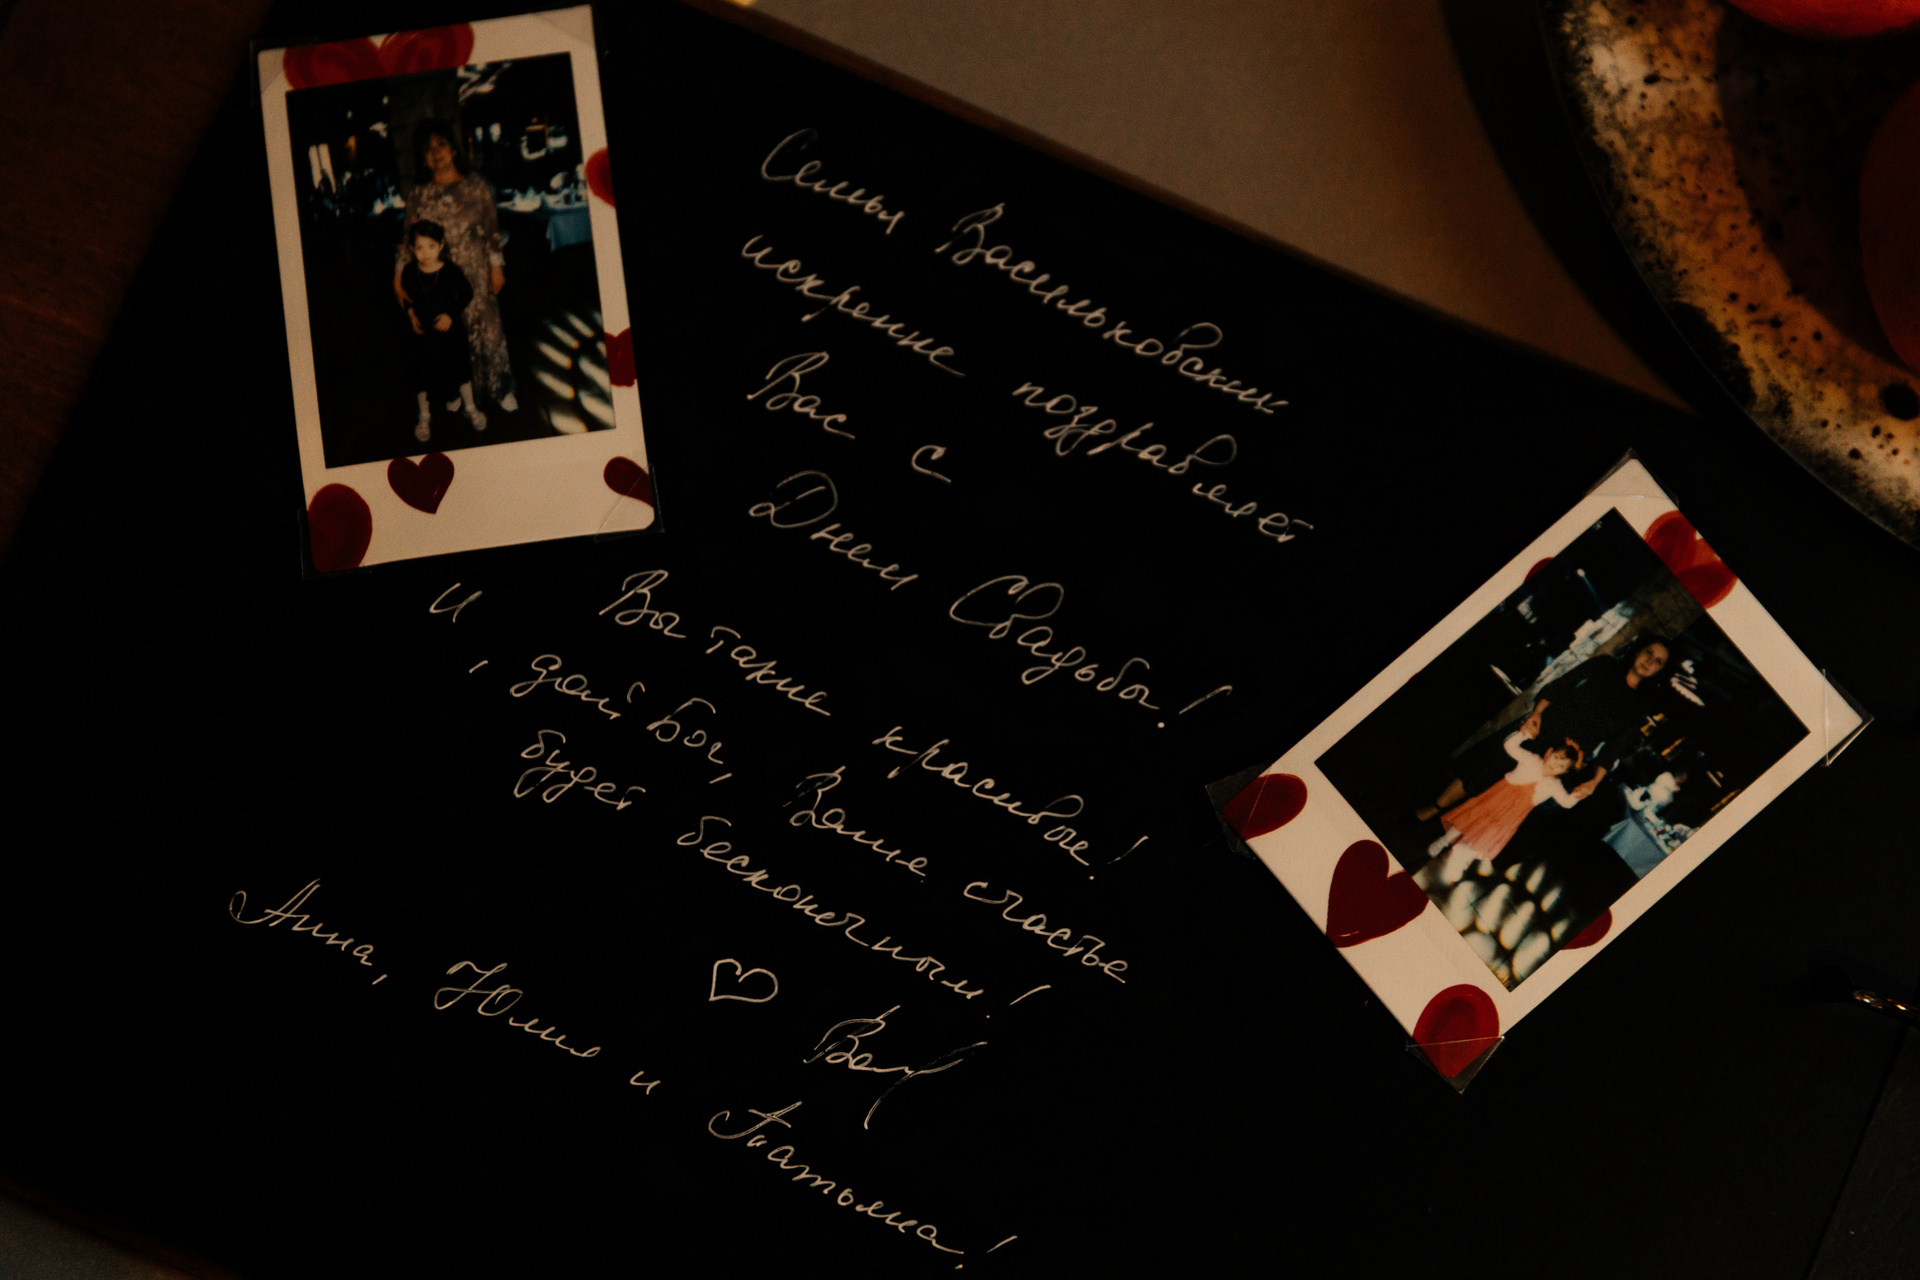 Семья Васильковских
искренне поздравляет
Вас с
Днем Свадьбы!
Вы такие красивые!
И, дай Бог, Ваше счастье
будет бесконечным!
♡ Вам
Анна, Юлия и Анатолиа!